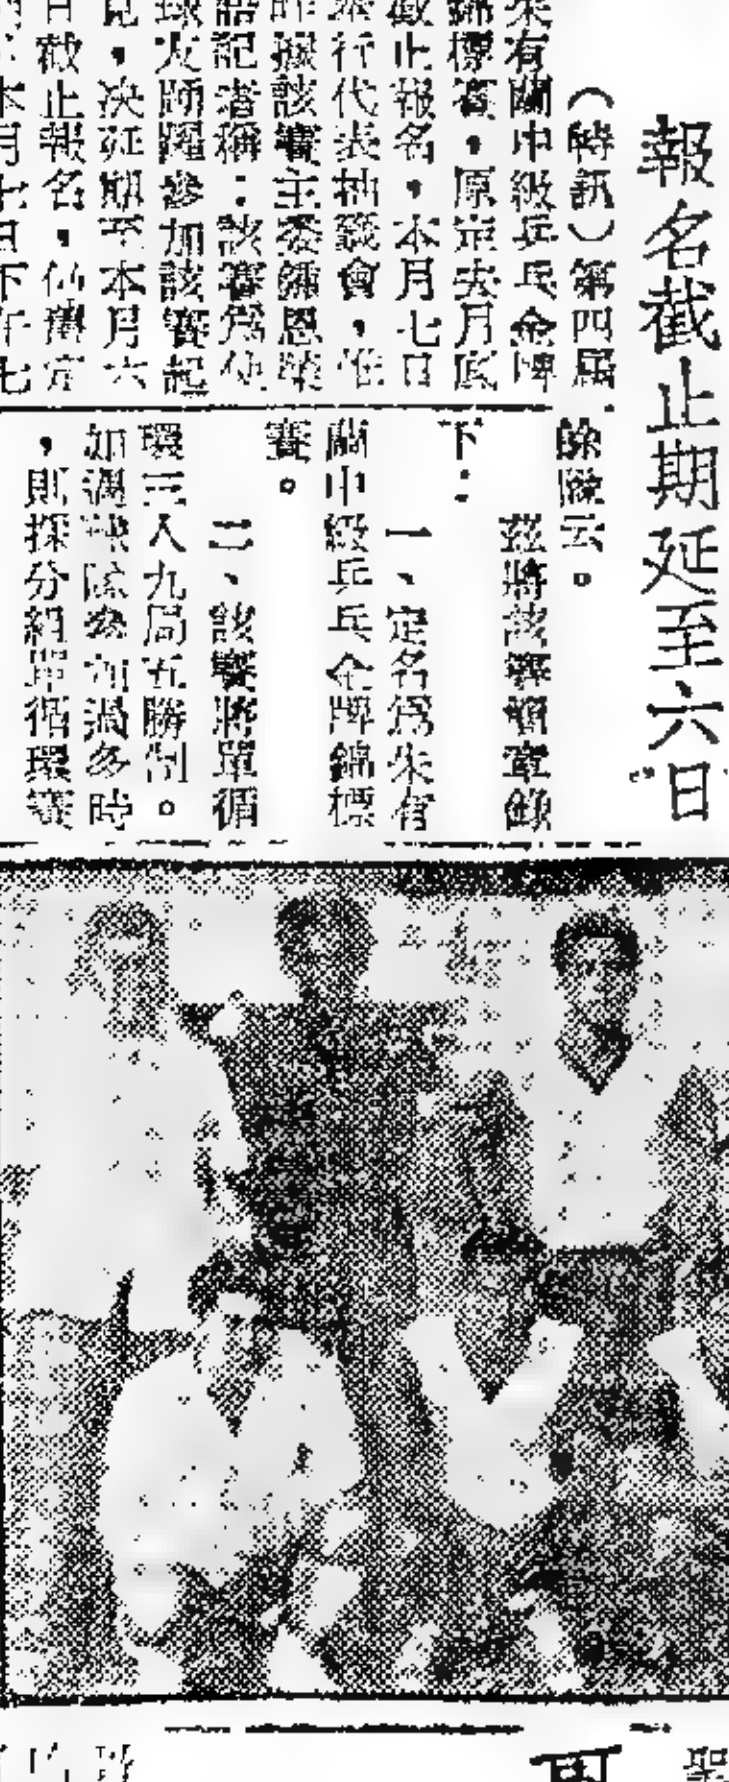 報名截止期延至六日
（特訊）第四屆
朱有蘭中級乒乓金牌
錦標賽，原定去月底
截止報名，本月七日
舉行代表抽籤會，惟
昨據該賽主委鍾恩榮
語記者稱：該賽爲使
球友踴躍參加該賽起
見，決延期至本月六
日截止報名，仍舊定
本月七日下午七
餘隊云。
茲將該賽簡章錄
下：
一、定名爲朱有
蘭中級乒乓金牌錦標
賽。
二、該賽將單循
環三人九局五勝制。
如遇球隊參加過多時
，則採分組單循環賽